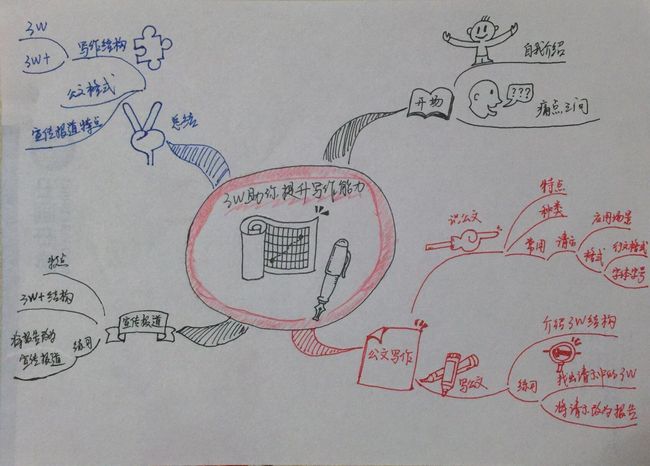 3W助你提升写作能力
开场
自我介绍
???
痛点三问
公文写作
识公文
特点
种类
常用
请示
应用场景
格式
行文格式
字体字号
写公文
介绍3W结构
练习
找出请示中的3W
将请示改为报告
宣传报道
特点
3W+结构
练习
将报告改为
宣传报道
总结
写作结构
3W
3W+
公文格式
宣传报道特点